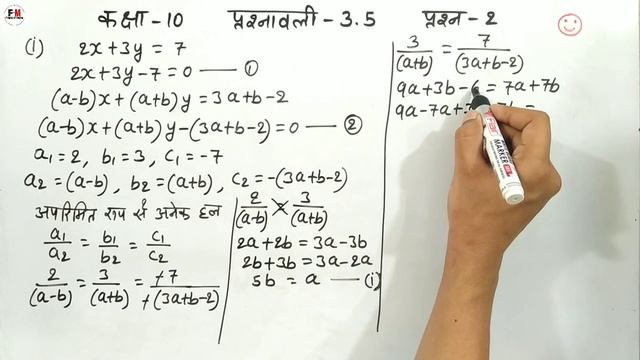 FM
कक्षा - 10 प्रश्नावली - 3.5 प्रश्न - 2
(i) 2x + 3y = 7
2x + 3y - 7 = 0 —— ①
(a-b)x + (a+b)y = 3a+b-2
(a-b)x + (a+b)y - (3a+b-2) = 0 —— ②
a₁ = 2, b₁ = 3, c₁ = -7
a₂ = (a-b), b₂ = (a+b), c₂ = -(3a+b-2)
अपरिमित रूप से अनेक हल
a₁/a₂ = b₁/b₂ = c₁/c₂
2/(a-b) = 3/(a+b) = -7/-(3a+b-2)
2/(a-b) = 3/(a+b)
2a+2b = 3a-3b
2b+3b = 3a-2a
5b = a —— (i)
3/(a+b) = 7/(3a+b-2)
9a+3b-6 = 7a+7b
9a-7a+ =
MARKER